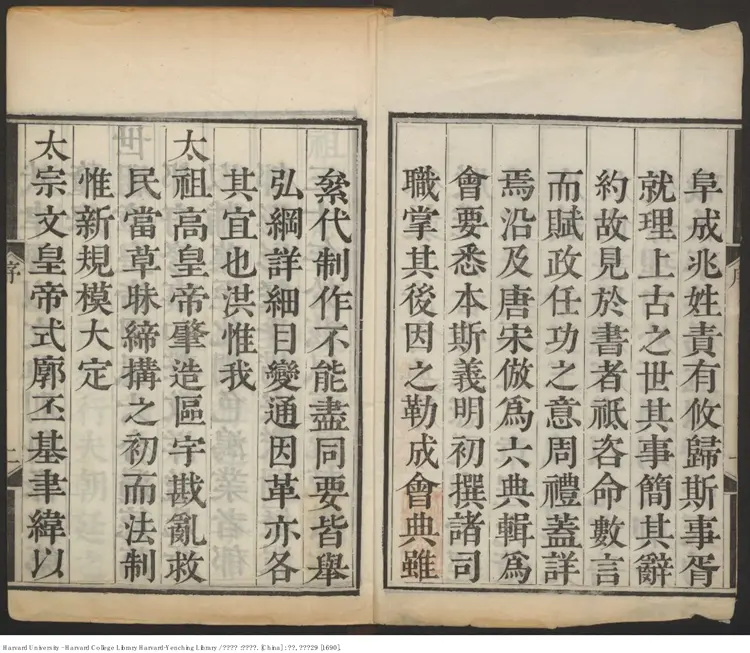 阜成兆姓責有攸歸斯事胥
就理上古之世其事簡其辭
約故見於書者祇咨命數言
而賦政任功之意周禮蓋詳
焉沿及唐宋倣爲六典輯爲
會要悉本斯義明初撰諸司
職掌其後因之勒成會典雖
絫代制作不能盡同要皆舉
弘綱詳細目變通因革亦各
其宜也洪惟我
太祖高皇帝肇造區宇戡亂救
民當草昧締搆之初而法制
惟新規模大定
太宗文皇帝式廓丕基聿緯以
序
一
Harvard University - Harvard College Library Harvard-Yenching Library / ???? :????. [China] : ??, ???29 [1690].